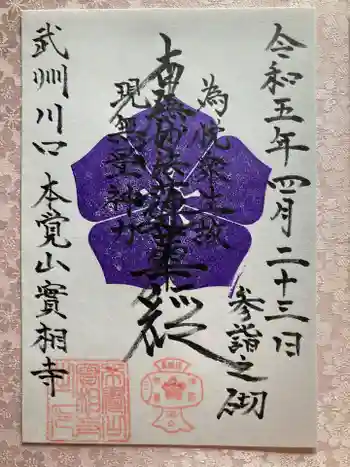 令和五年四月二十三日
参詣之砌
為悦衆生故
南無妙法蓮華経
現無量神力
武州川口 本覚山實相寺